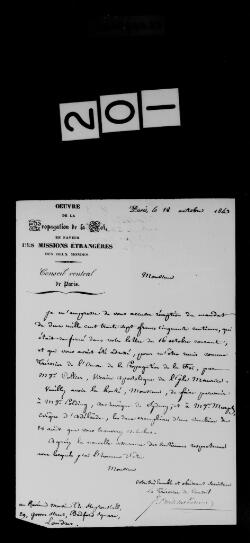 201
ŒUVRE
DE LA
Propagation de la Foi,
EN FAVEUR
DES MISSIONS ÉTRANGÈRES
DES DEUX MONDES
Conseil central
de Paris.
Paris, le 18 octobre 1843
Monsieur
Je m'empresse de vous accuser réception du mandat
de deux mille cent trente sept francs cinquante centimes, qui
était renfermé dans votre lettre du 16 octobre courant, et
qui vous avait été adressé, pour m'être remis comme
Trésorier de l'Œuvre de la Propagation de la Foi, par
Mgr Collier, Vicaire apostolique de l'Isle Maurice.
Veuillez avoir la bonté, Monsieur, de faire parvenir
à Mgr Polding, archevêque de Sydney, et à Mgr Murphy
évêque d'Adélaïde, les deux
août que vous
Agréez la nouvelle assurance des sentiments respectueux
avec lesquels j'ai l'honneur d'être
Monsieur
Votre très humble et obéissant serviteur
Le Trésorier du Conseil
au Révérend
Bedford Square,
Londres.